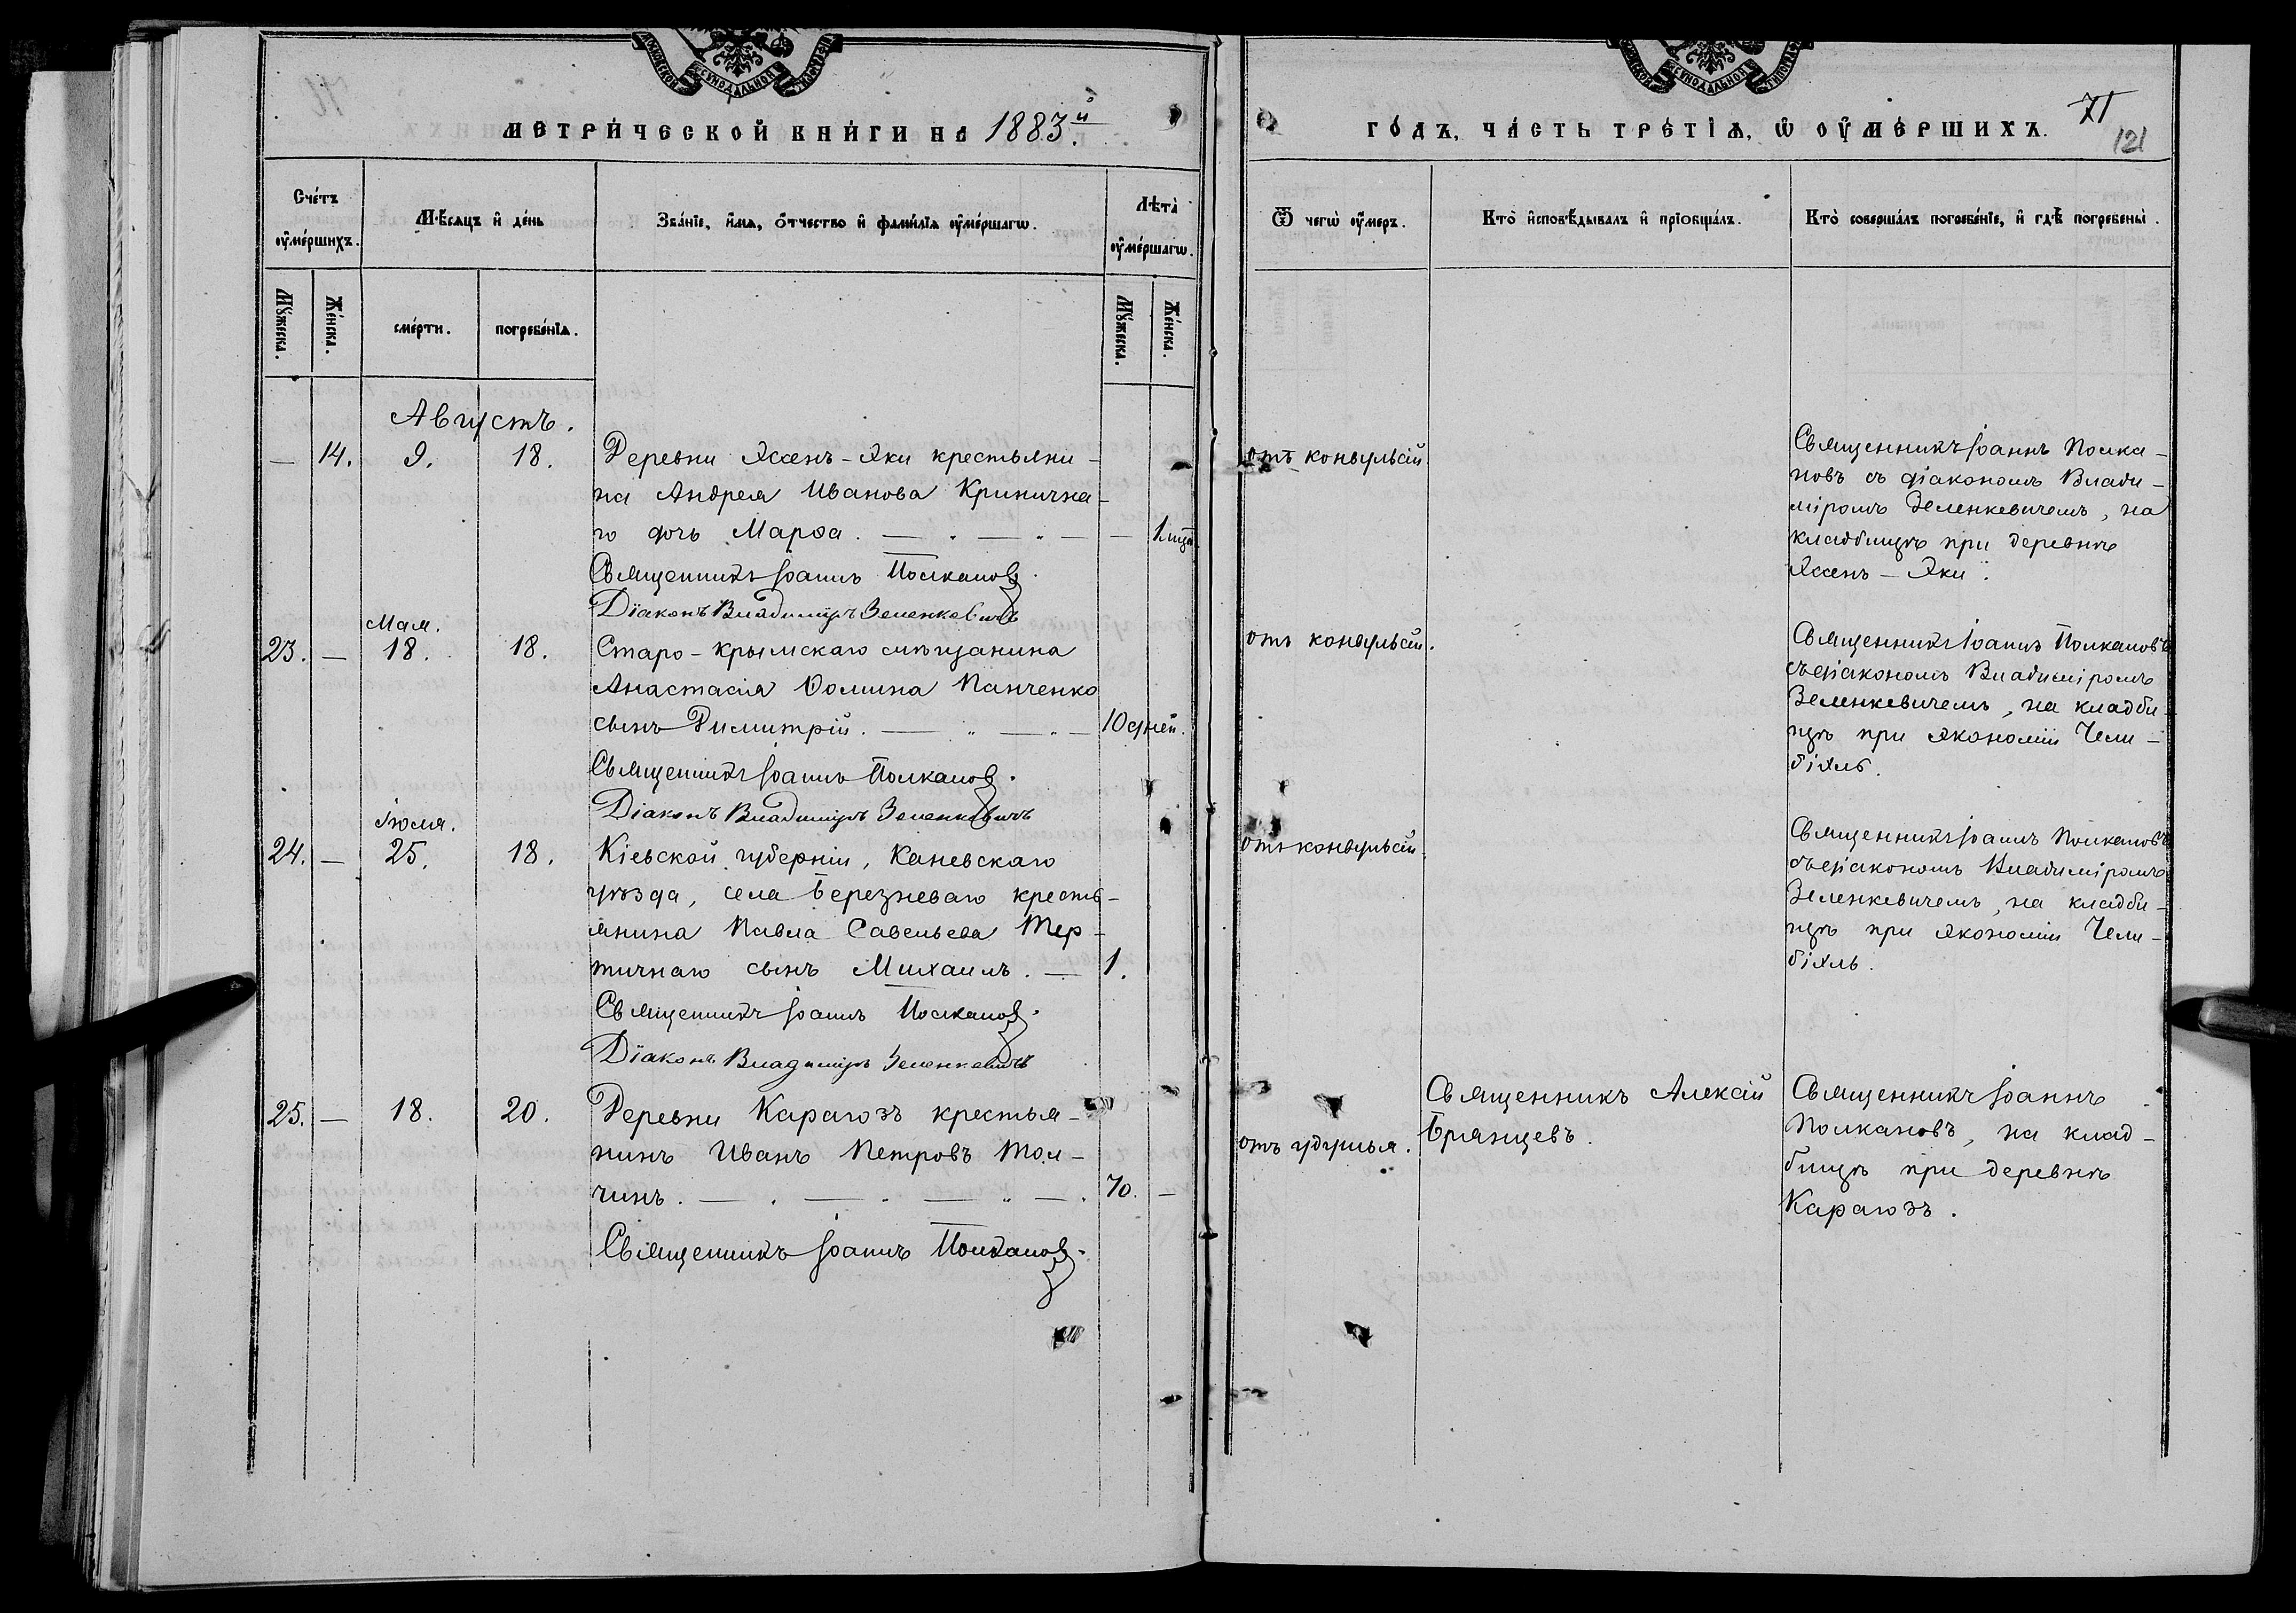 МОСКОВСКОЙ СУНОДАЛЬНОЙ ТИПОГРАФІИ
МЕТРИ́ЧЕСКОЙ КНИ́ГИ НА 1883й.
Сче́тъ ᲂу҆ме́ршихъ.
Мѣ́сяцъ и҆ де́нь
Зва́нїе, и҆́мя, ѻ҆́тчество и҆ фами́лїя ᲂу҆ме́ршагѡ.
Лѣта̀ ᲂу҆ме́ршагѡ.
Мꙋ́жеска.
Же́нска.
сме́рти.
погребе́нїя.
Мꙋ́жеска.
Же́нска.
Августъ.
— 14. 9. 18. Деревни Ясенъ-Яки крестьяни-
на Андрея Иванова Кринична-
го дочь Марѳа. — „ — „ — —
Священникъ Іоаннъ Полкановъ.
Діаконъ Владиміръ Зеленкевичъ
Мая.
23. — 18. 18. Старо-крымскаго мѣщанина
Анастасія Ѳомина Панченко
сынъ Димитрій. — „ — „ — 10 дней.
Священникъ Іоаннъ Полкановъ.
Діаконъ Владиміръ Зеленкевичъ
Іюля.
24. — 25. 18. Кіевской губерніи, Каневскаго
уѣзда, села Березневаго кресть-
янина Павла Савельева Тер-
тичнаго сынъ Михаилъ. — 1.
Священникъ Іоаннъ Полкановъ.
Діаконъ Владиміръ Зеленкевичъ
25. — 18. 20. Деревни Карагозъ крестья-
нинъ Иванъ Петровъ Тол-
чинъ. — „ — „ — „ — . 70. —
Священникъ Іоаннъ Полкановъ.
МОСКОВСКОЙ СУНОДАЛЬНОЙ ТИПОГРАФІИ
ГО́ДЪ, ЧА́СТЬ ТРЕ́ТЇѦ, Ѡ҆ ОУ҆МЕ́РШИХЪ.
71
121
Ѿ чегѡ̀ ᲂу҆́меръ.
Кто̀ и҆сповѣ́дывалъ и҆ прїобща́лъ.
Кто̀ соверша́лъ погребе́нїе, и҆ гдѣ̀ погребены̀.
отъ конвульсій
Священникъ Іоаннъ Полка-
новъ съ діакономъ Влади-
міромъ Зеленкевичемъ, на
кладбищѣ при деревнѣ
Ясенъ-Яки.
отъ конвульсій.
Священникъ Іоаннъ Полкановъ
съ діакономъ Владиміромъ
Зеленкевичемъ, на кладби-
щѣ при экономіи Чели-
біяль.
отъ конвульсій.
Священникъ Іоаннъ Полкановъ
съ діакономъ Владиміромъ
Зеленкевичемъ, на кладби-
щѣ при экономіи Чели-
біяль.
отъ удушья.
Священникъ Алексій
Брянцевъ.
Священникъ Іоаннъ
Полкановъ, на клад-
бищѣ при деревнѣ
Карагозъ.